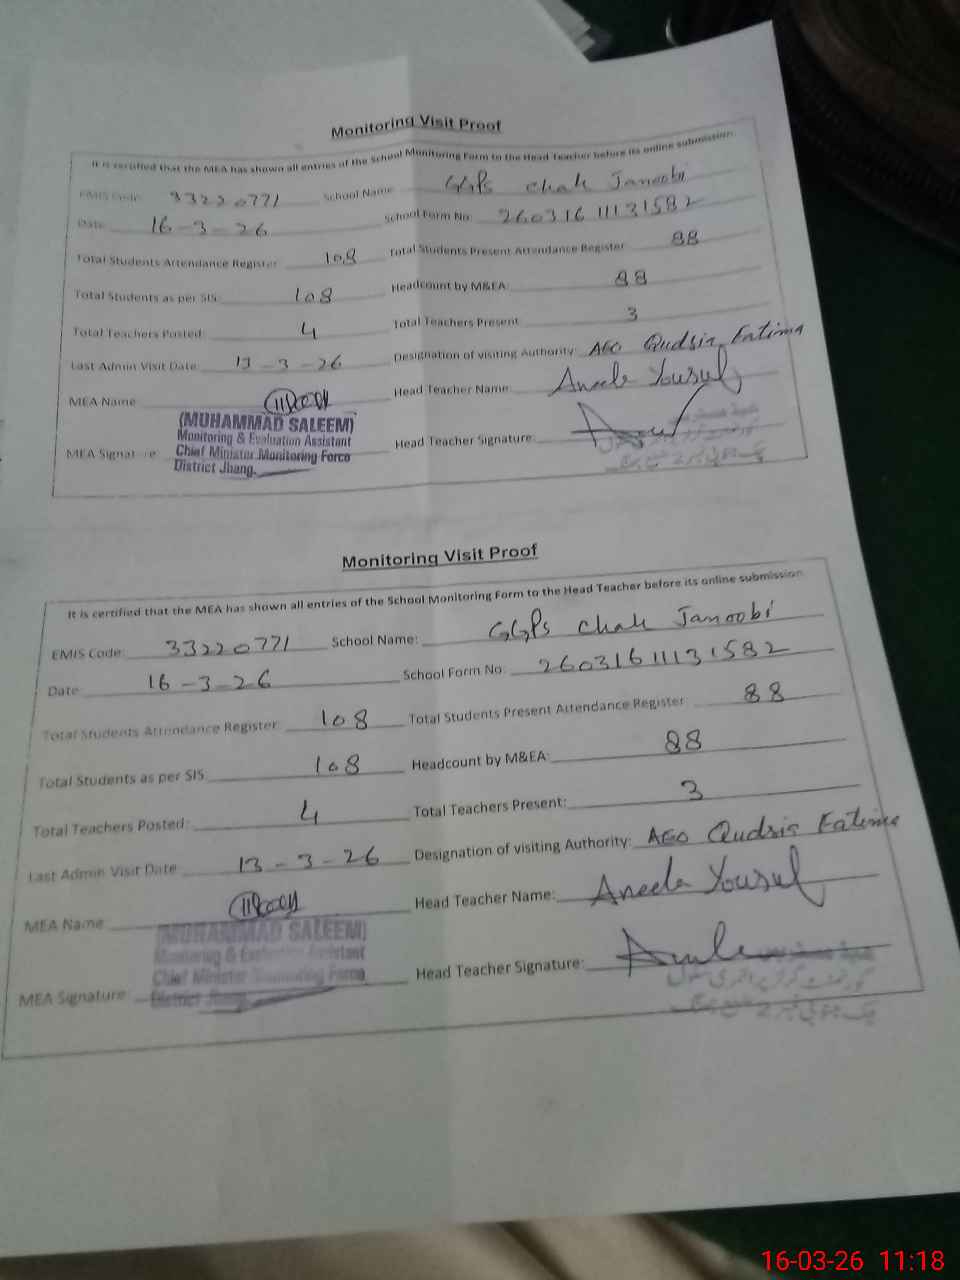 Monitoring Visit Proof
It is certified that the MEA has shown all entries of the School Monitoring Form to the Head Teacher before its online submission
EMIS Code: 33220771 School Name: GGPS Chak Janoobi
Date: 16-3-26 School Form No: 26031611131582
Total Students Attendance Register: 108 Total Students Present Attendance Register: 88
Total Students as per SIS: 108 Headcount by M&EA: 88
Total Teachers Posted: 4 Total Teachers Present: 3
Last Admin Visit Date: 13-3-26 Designation of visiting Authority: AEO Qudsia Fatima
MEA Name: Head Teacher Name: Aneela Yousuf
(MUHAMMAD SALEEM)
Monitoring & Evaluation Assistant
Chief Minister Monitoring Force
District Jhang.
MEA Signature: Head Teacher Signature:
Monitoring Visit Proof
It is certified that the MEA has shown all entries of the School Monitoring Form to the Head Teacher before its online submission
EMIS Code: 33220771 School Name: GGPS Chak Janoobi
Date: 16-3-26 School Form No: 26031611131582
Total Students Attendance Register: 108 Total Students Present Attendance Register: 88
Total Students as per SIS: 108 Headcount by M&EA: 88
Total Teachers Posted: 4 Total Teachers Present: 3
Last Admin Visit Date: 13-3-26 Designation of visiting Authority: AEO Qudsia Fatima
MEA Name: Head Teacher Name: Aneela Yousuf
(MUHAMMAD SALEEM)
Monitoring & Evaluation Assistant
Chief Minister Monitoring Force
District Jhang.
MEA Signature: Head Teacher Signature:
گورنمنٹ گرلز پرائمری سکول
16-03-26 11:18